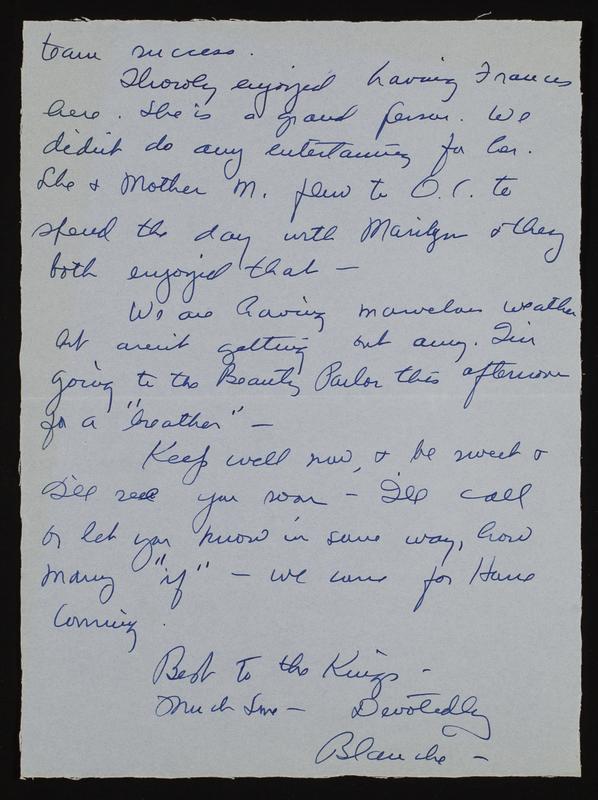 team success.
Thoroly enjoyed having Frances
here. She is a grand person. We
didn't do any entertaining for her.
She & Mother M. flew to O.C. to
spend the day with Marilyn & they
both enjoyed that —
We are having marvelous weather
but aren't getting out any. I'm
going to the Beauty Parlor this afternoon
for a "breather" —
Keep well now, & be sweet &
I'll see you soon — I'll call
or let you know in some way, how
many "if" — we come for Home
Coming.
Best to the Kings —
Much love — Devotedly
Blanche —